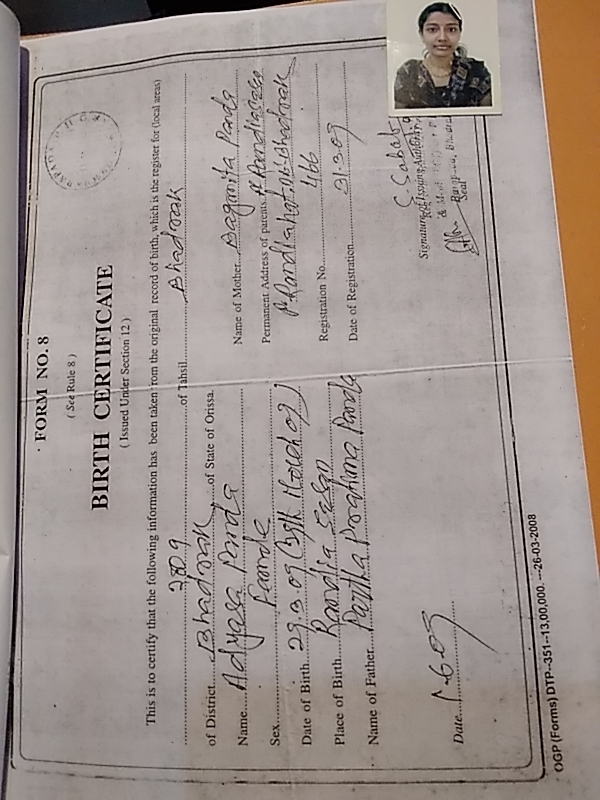 FORM NO. 8
( See Rule 8 )
BIRTH CERTIFICATE
( Issued Under Section 12 )
This is to certify that the following information has been taken from the original record of birth, which is the register for (local areas)
2809 of Tahsil Bhadrak
of District Bhadrak of State of Orissa.
Name Adyasa Panda
Name of Mother Panda
Sex Female
Permanent Address of parents
Date of Birth 29.3.09
Place of Birth Randia
Registration No. 466
Name of Father Partha Pratima Panda
Date of Registration 31.3.09
Signature of Issuing Authority
Seal
Date
OGP (Forms) DTP--351--13,00,000. ---26-03-2008